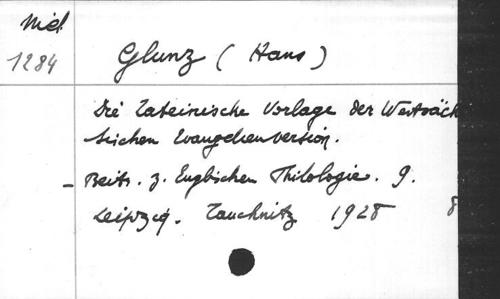 Niel
1284
Glunz (Hans)
Die lateinische Vorlage der Westsäch
sischen Evangelienversion.
- Beitr. z. Englischen Philologie. 9.
Leipzig. Tauchnitz 1928 8